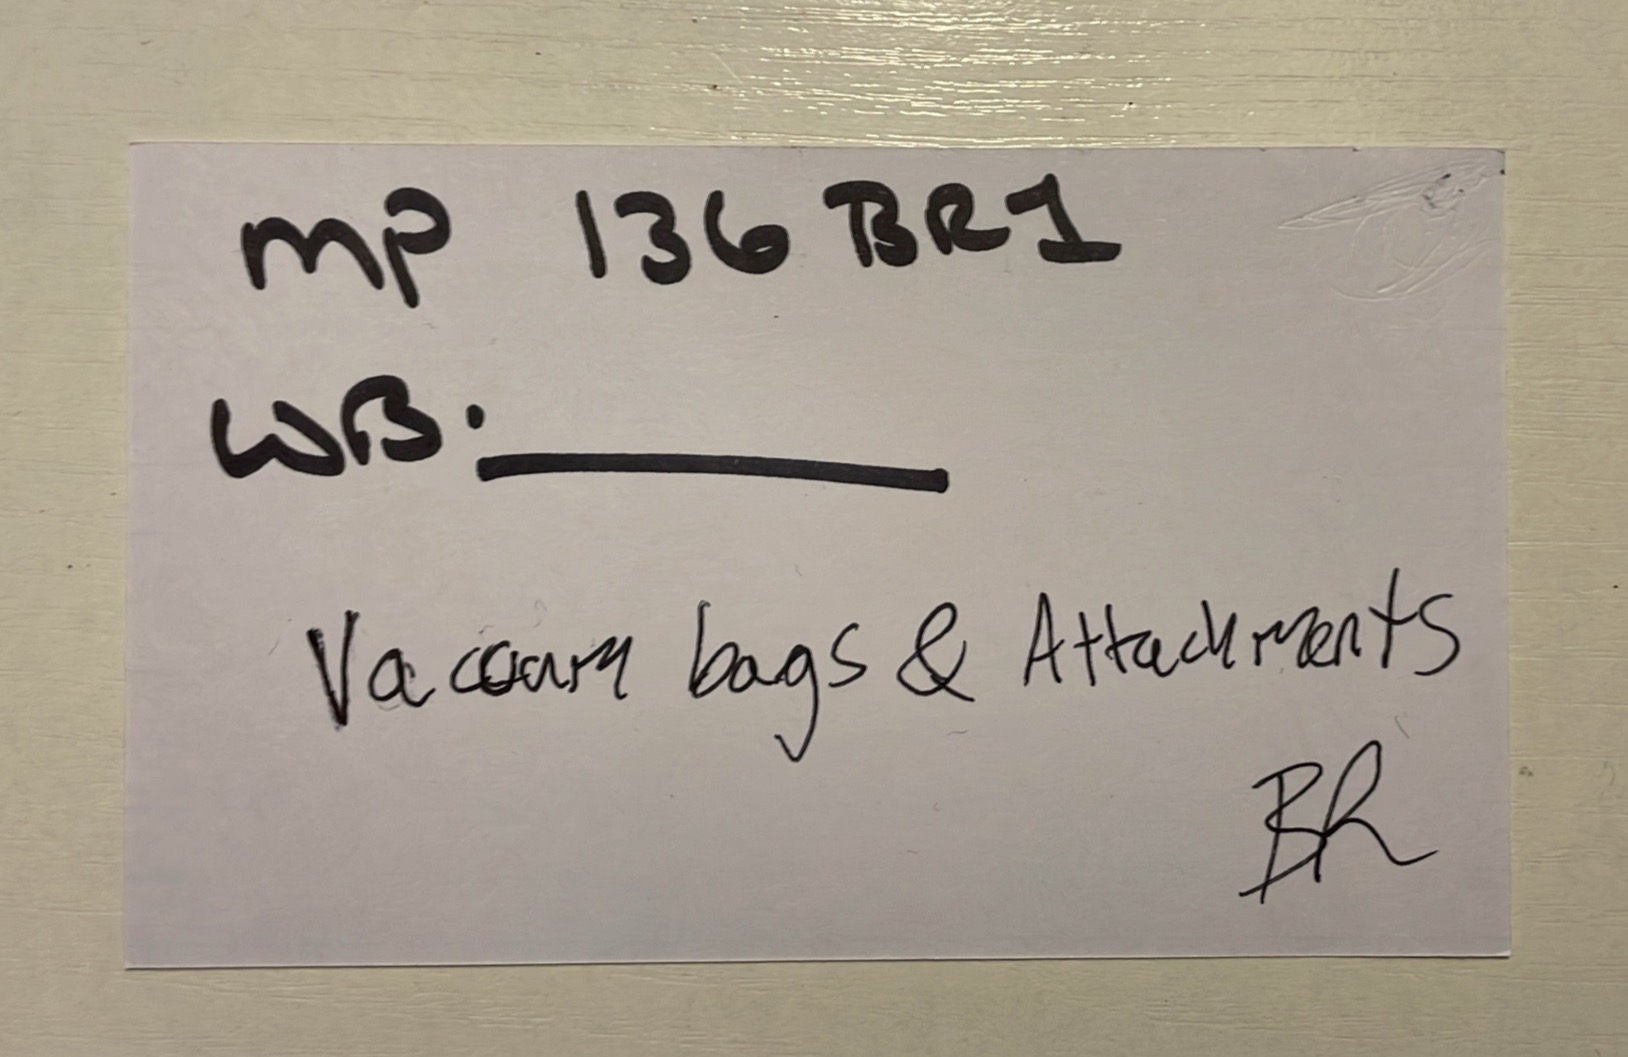 MP 136BR1
WB. ________
Vacuum bags & Attachments
BR